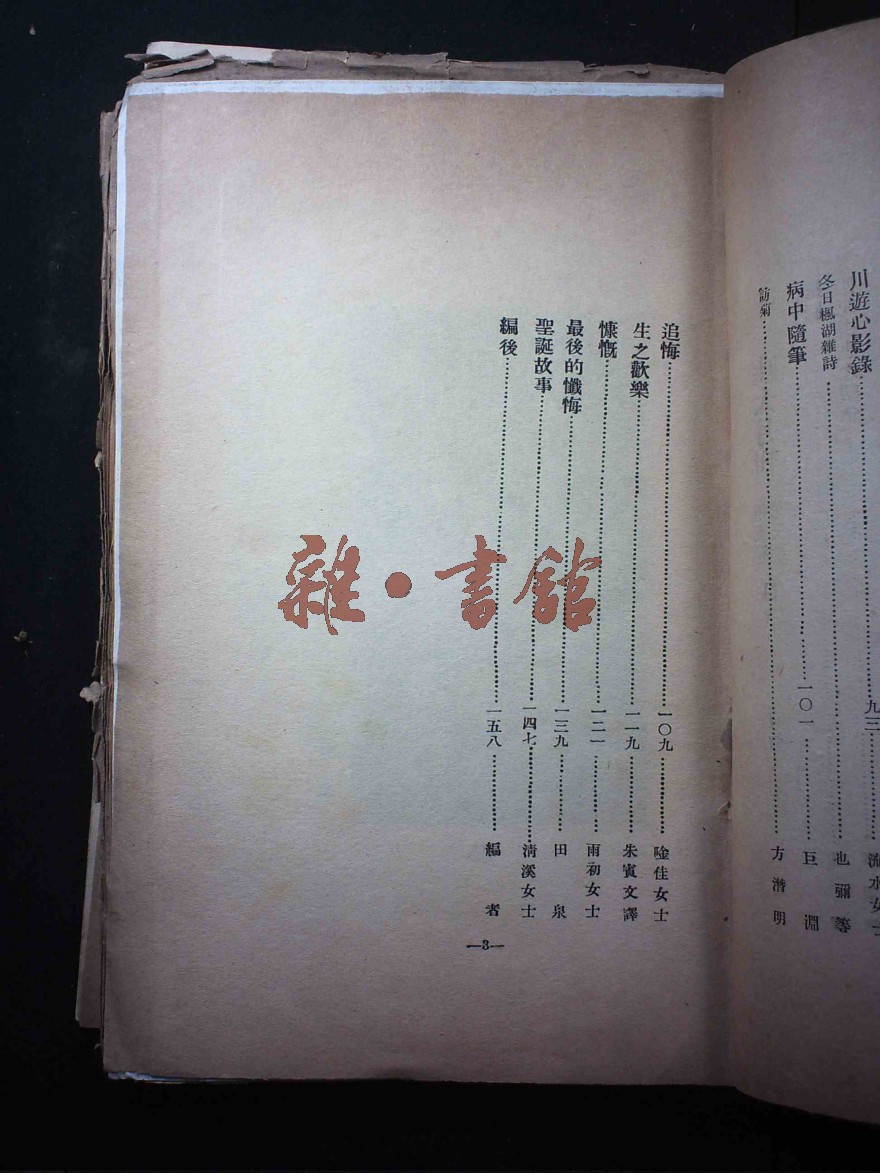 川遊心影錄……九三……流水女士
冬日楓湖雜詩……也彌等
病中隨筆……一〇一……巨淵
訪菊……方潛明
追悔……一〇九……唫佳女士
生之歡樂……一一九……朱賓文譯
慷慨……一二一……雨初女士
最後的懺悔……一三九……田泉
聖誕故事……一四七……清溪女士
編後……一五八……編者
—3—
雜·書館